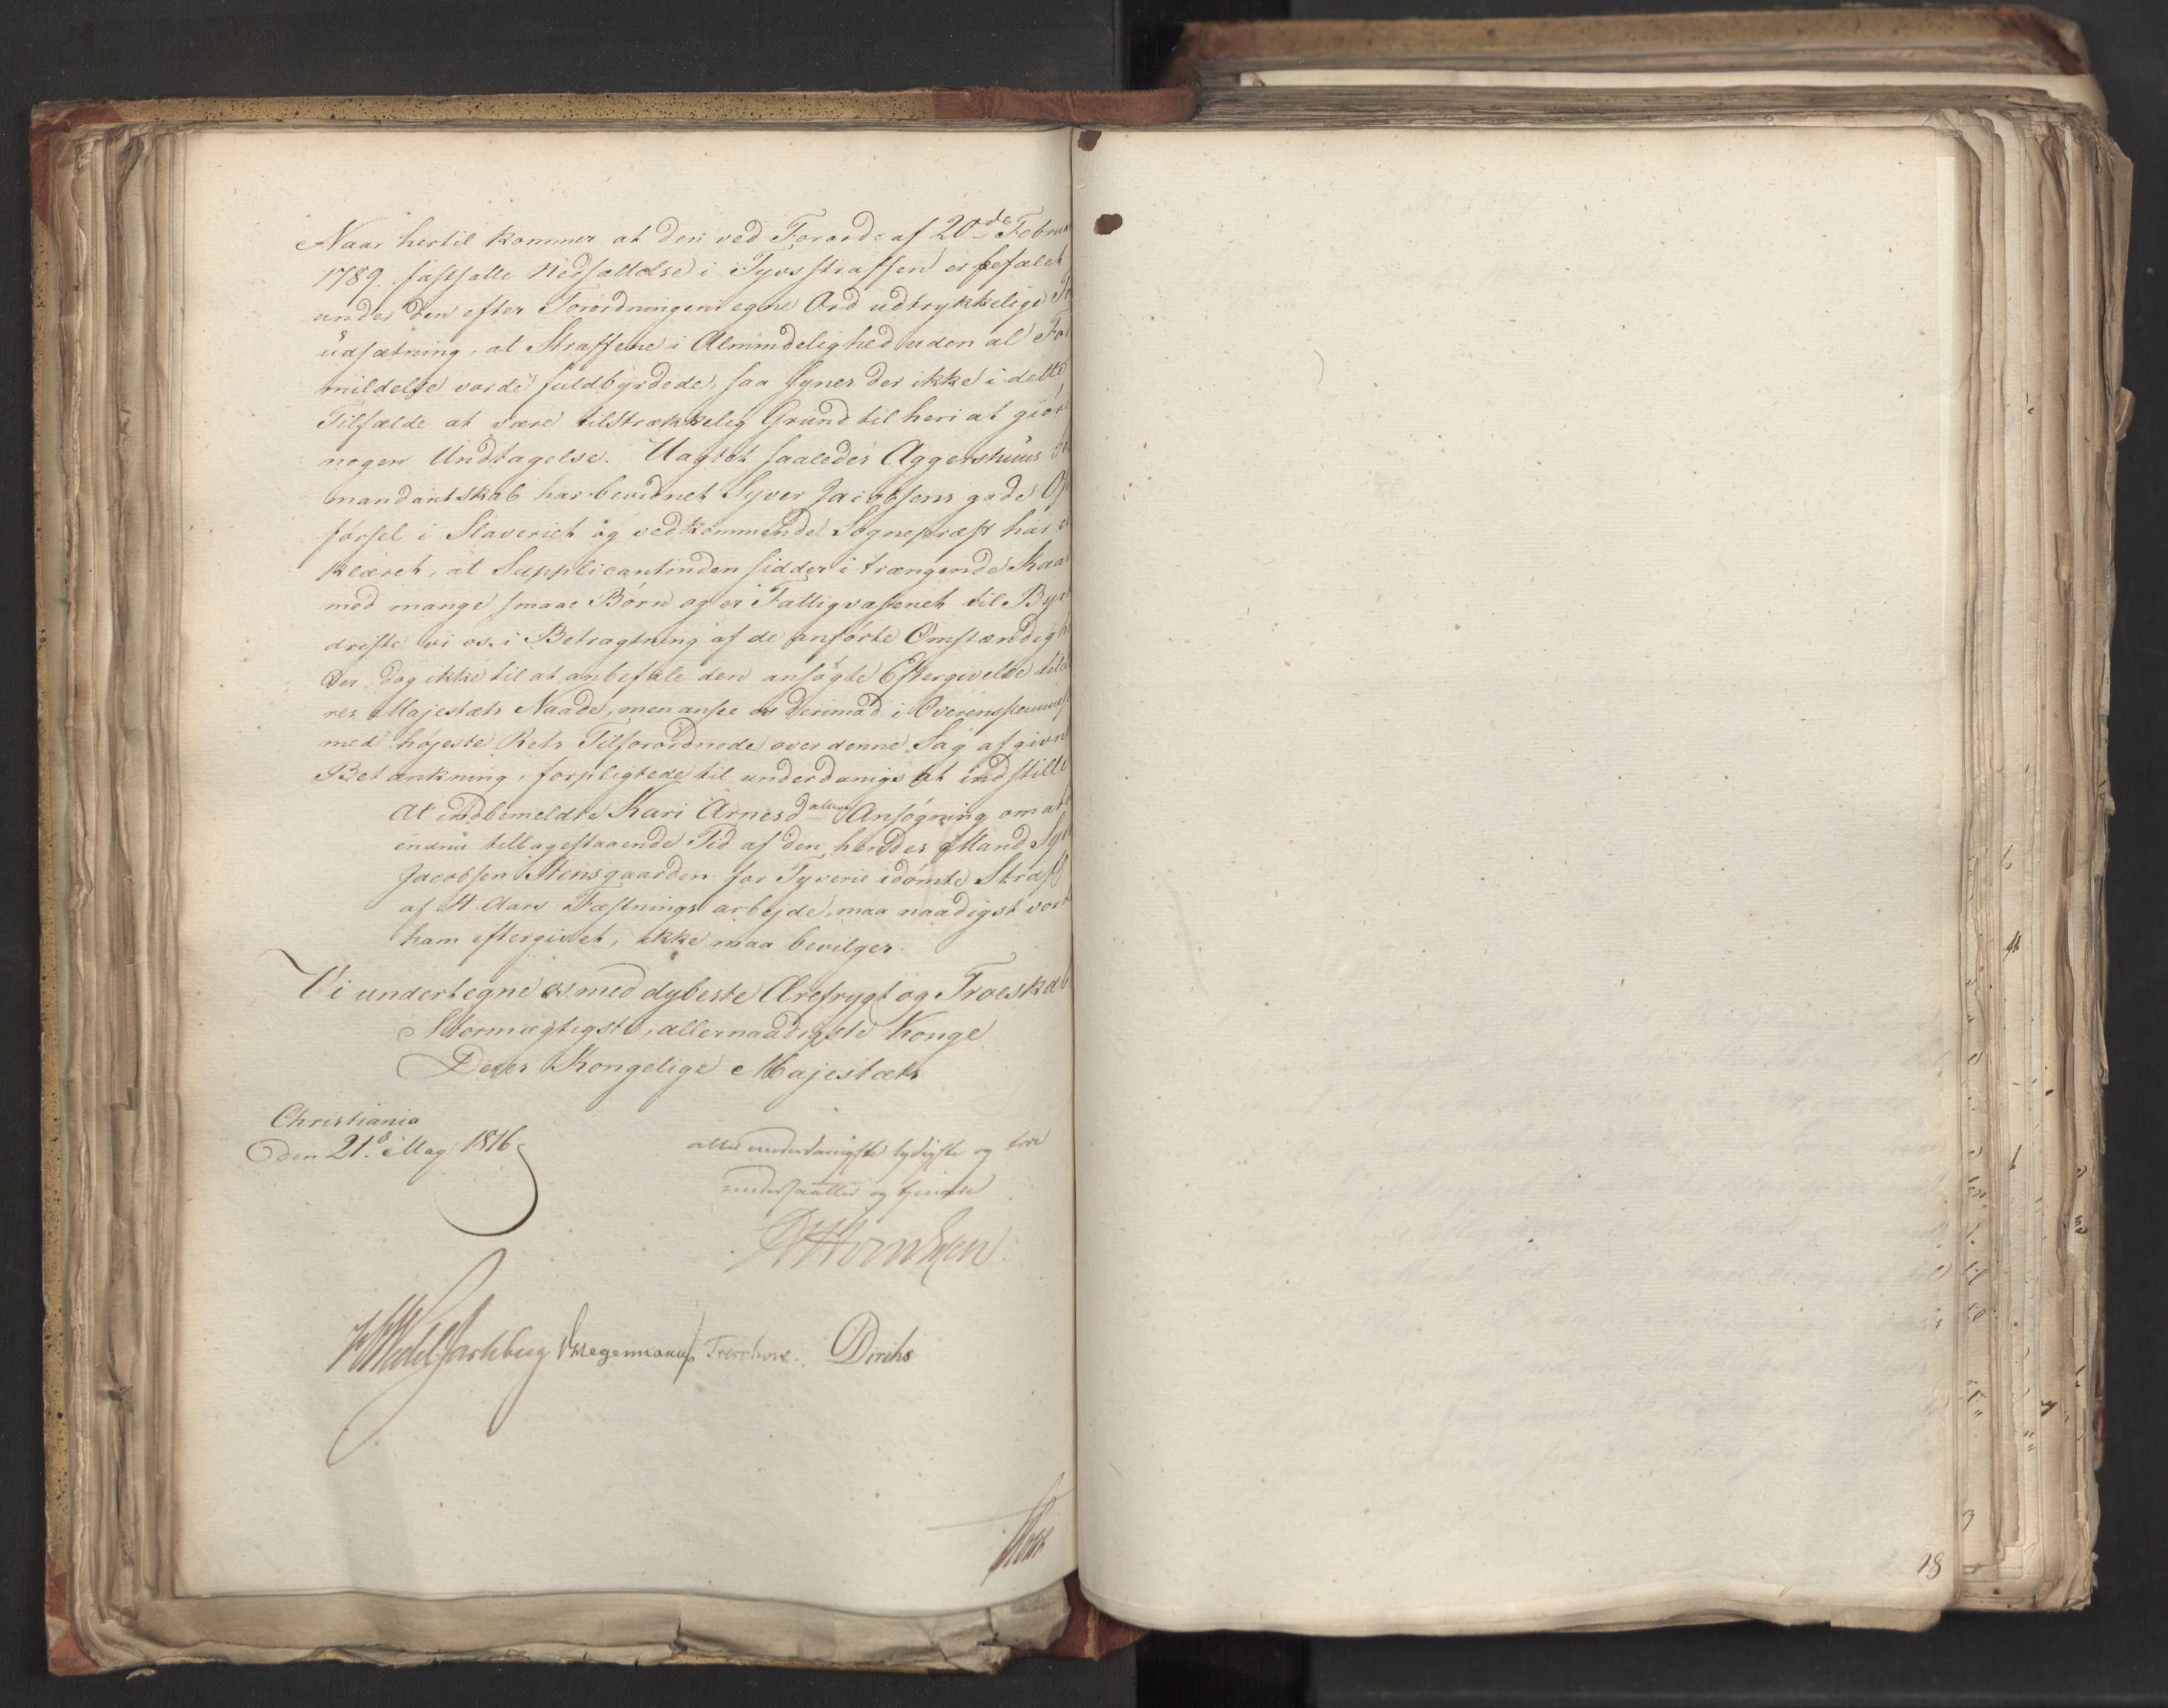 Naar hertil kommer at den ved Forord: af 20de Febru
1789. fastsatte Nedsættelse i Tyvsstraffen er befalet
under den efter Forordningens egne Ord udtrykkelige Fo
udsætning, at Straffene i Almindelighed uden al For
mildelse vorde fuldbyrdede, saa synes der ikke i dette
Tilfælde at være tilstrækkelig Grund til heri at giør
nogen Undtagelse. Uagtet saaledes Aggershuus
mandantskab har bevidnet Syver Jacobsens gode Op
førsel i Slaveriet og vedkommende Sognepræst har e
klæret, at Supplicantinden sidder i trængende Kaa
med mange smaae Børn og er Fattigvæsenet til Byr
driste vi os i Betragtning af de anførte Omstændigh
der dog ikke til at anbefale den ansøgte Eftergivelse til
res Majestæts Naade, men ansee os derimod i Overensstemmel
med høyeste Rets Tilforordnede over denne Sag afgivn
Betænkning, forpligtede til underdanigst at indstille
At indbemeldte Kari Arnesdatters Ansøgning om at
endnu tilbagestaaende Tid af den hendes Mand Syv
Jacobsen Stensgaarden for Tyverie idømte Straf
af 4 Aars Fæstningsarbejde, maa naadigst vord
ham eftergivet, ikke maa bevilges.
Vi undertegne os med dybeste Ærefrygt og Troeskab
Stormægtigste, allernaadigste Konge
Deres Kongelige Majestæts
Christiania
den 21d May 1816
allerunderdanigste lydigste og troe
undersaatter og tienere
Wedel Jarlsberg Hegermann Treschow. Diriks
18